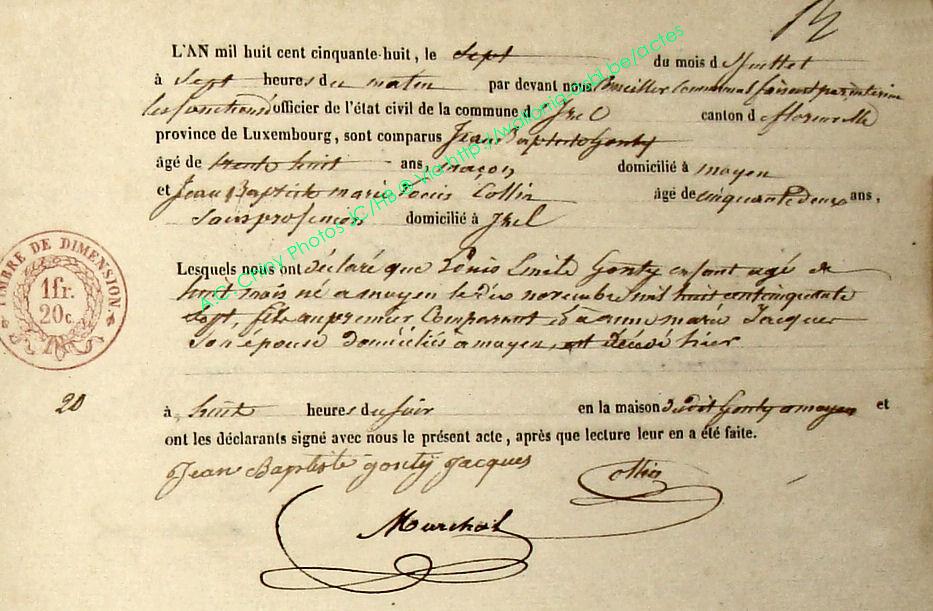 L'AN mil huit cent cinquante-huit, le sept du mois de Juillet
à sept heures du matin par devant nous Conseiller Communal faisant par intérim
les fonctions d'officier de l'état civil de la commune d'Izel canton d florenville
province de Luxembourg, sont comparus Jean Baptiste Gonty
âgé de trente huit ans, maçon domicilié à moyen
et Jean Baptiste marie Louis Collin âgé de cinquante deux ans,
Sans profession domicilié à Izel
Lesquels nous ont déclaré que Louis Emile Gonty enfant agé de
huit mois né a moyen le dix novembre mil huit cent cinquante
sept, fils au premier Comparant et à anne marie Jacques
Son épouse domiciliés a moyen, est décédé hier
20
à huit heures du soir en la maison dudit Gonty a moyen et
ont les déclarants signé avec nous le présent acte, après que lecture leur en a été faite.
Jean Baptiste gonty jacques Collin
Marchal
TIMBRE DE DIMENSION.
1 fr.
20 c.
A.C. Chiny Photos JC/HB © Via http://wallonia-asbl.be/actes